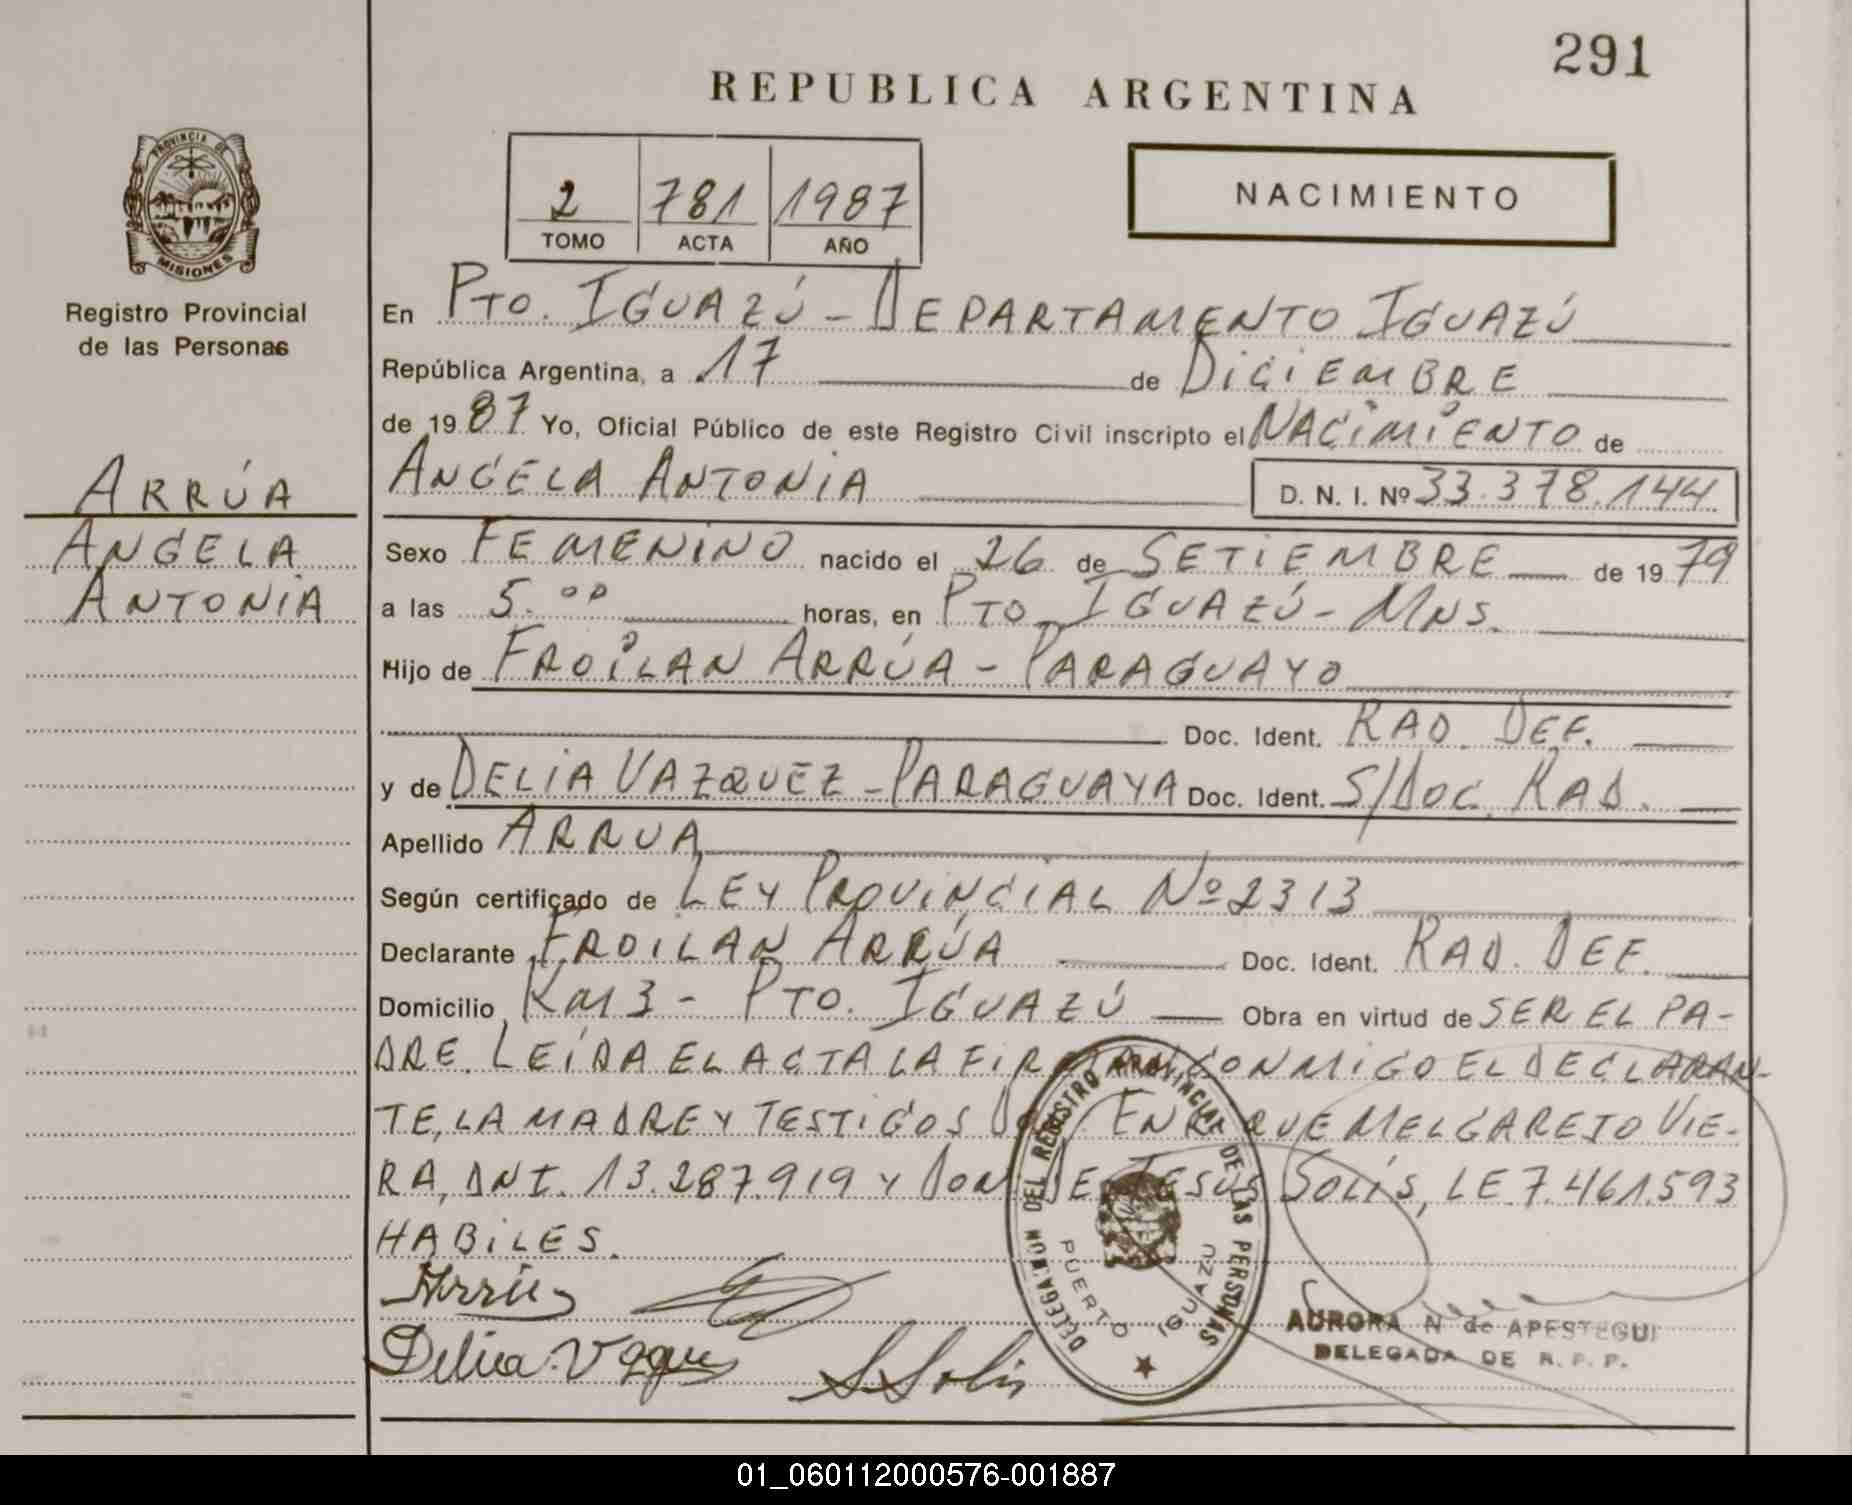 291
REPUBLICA ARGENTINA
PROVINCIA DE
MISIONES
Registro Provincial
de las Personas
2 781 1987
TOMO ACTA AÑO
NACIMIENTO
En PTO. IGUAZÚ - DEPARTAMENTO IGUAZÚ
República Argentina, a 17 de DICIEMBRE
de 1987 Yo, Oficial Público de este Registro Civil inscripto el NACIMIENTO de
ARRÚA
ANGELA
ANTONIA
ANGELA ANTONIA D. N. I. Nº 33.378.144
Sexo FEMENINO nacido el 26 de SETIEMBRE de 1979
a las 5.00 horas, en PTO IGUAZÚ - MNS.
Hijo de FROILAN ARRÚA - PARAGUAYO
Doc. Ident. RAD. DEF.
y de DELIA VAZQUEZ - PARAGUAYA Doc. Ident. S/DOC. RAD.
Apellido ARRUA
Según certificado de LEY PROVINCIAL Nº 2313
Declarante FROILAN ARRÚA Doc. Ident. RAD. DEF.
Domicilio KM 3 - PTO. IGUAZÚ Obra en virtud de SER EL PA-
DRE. LEÍDA EL ACTA LA FIRMAN CONMIGO EL DECLARAN-
TE, LA MADRE Y TESTIGOS ENRIQUE MELGAREJO VIE-
RA, DNI. 13.287.919 Y DON JESUS SOLÍS, LE 7.461.593
HABILES.
Arrúa
Delia Vazque
S Solis
DELEGACION DEL REGISTRO PROVINCIAL DE LAS PERSONAS
PUERTO IGUAZU
AURORA N de APESTEGUI
DELEGADA DE R. P. P.
01_060112000576-001887